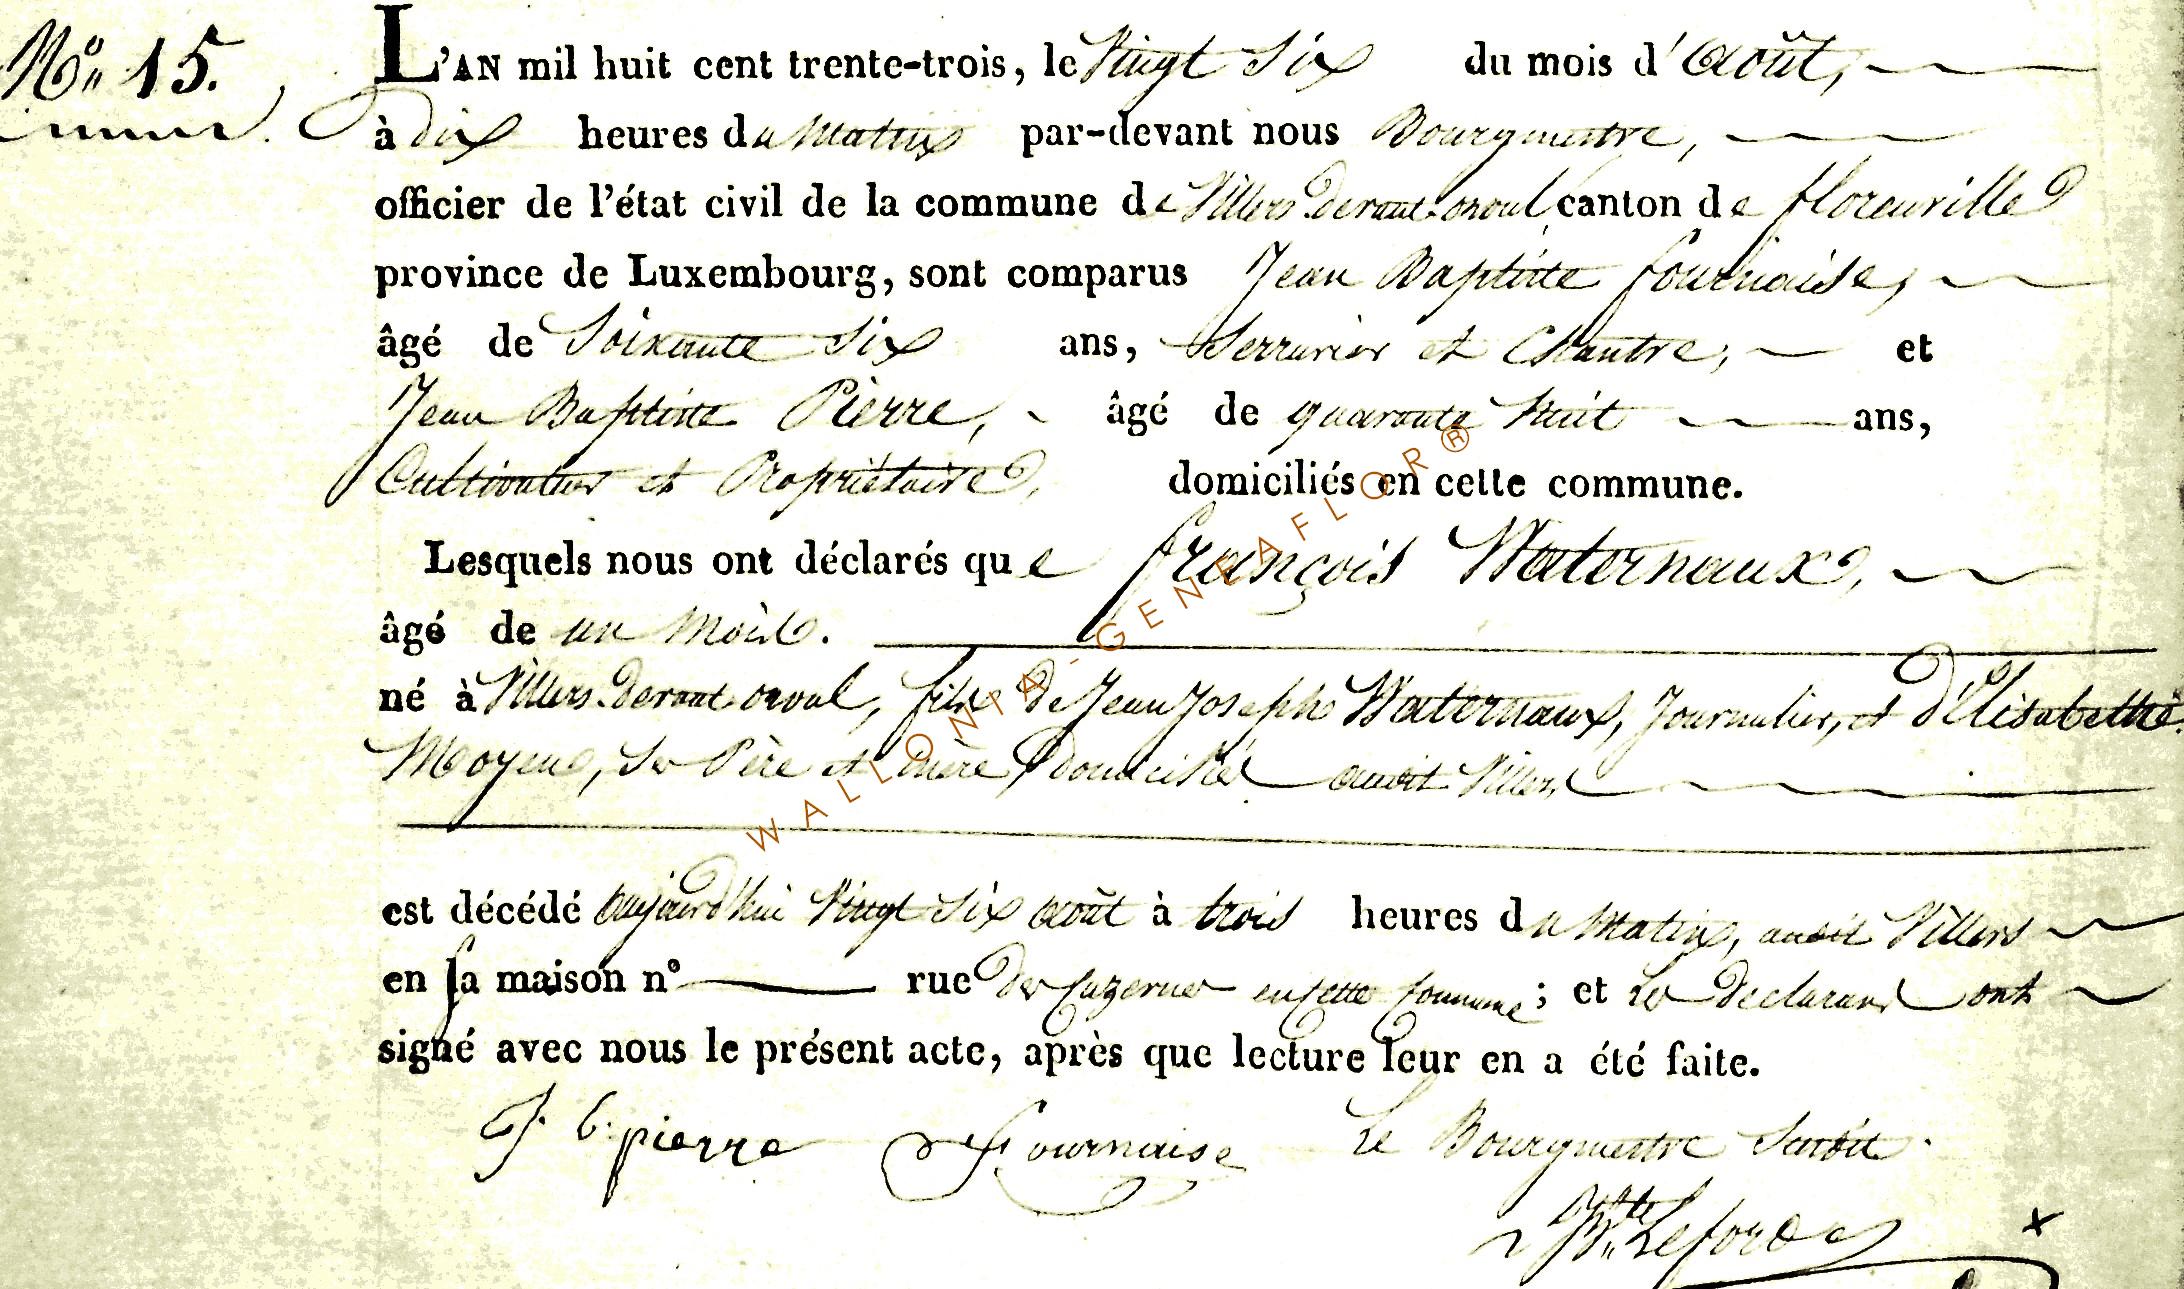 N°. 15.
L'AN mil huit cent trente-trois, le Vingt Six du mois d'Août,
à dix heures du Matin par-devant nous Bourgmestre,
officier de l'état civil de la commune de Villers devant orval canton de florenville
province de Luxembourg, sont comparus Jean Baptiste fournaise,
âgé de Soixante Six ans, Serrurier et Chantre, et
Jean Baptiste Pierre, âgé de quarante huit ans,
Cultivateur et Propriétaire, domiciliés en cette commune.
Lesquels nous ont déclarés que françois Waternaux,
âgé de un Mois.
né à Villers devant orval, fils de Jean Joseph Waternaux, Journalier, et d'Élisabethe
Moyen, Ses Père et mère domiciliés audit Villers
est décédé aujourd'hui Vingt Six août à trois heures du Matin, audit Villers
en sa maison n° rue des Cazernes en cette Commune; et les déclarans ont
signé avec nous le présent acte, après que lecture leur en a été faite.
J. b. pierre Fournaise Le Bourgmestre Susdit
Bte Leforde
WALLONIA-GENEAFLOR®